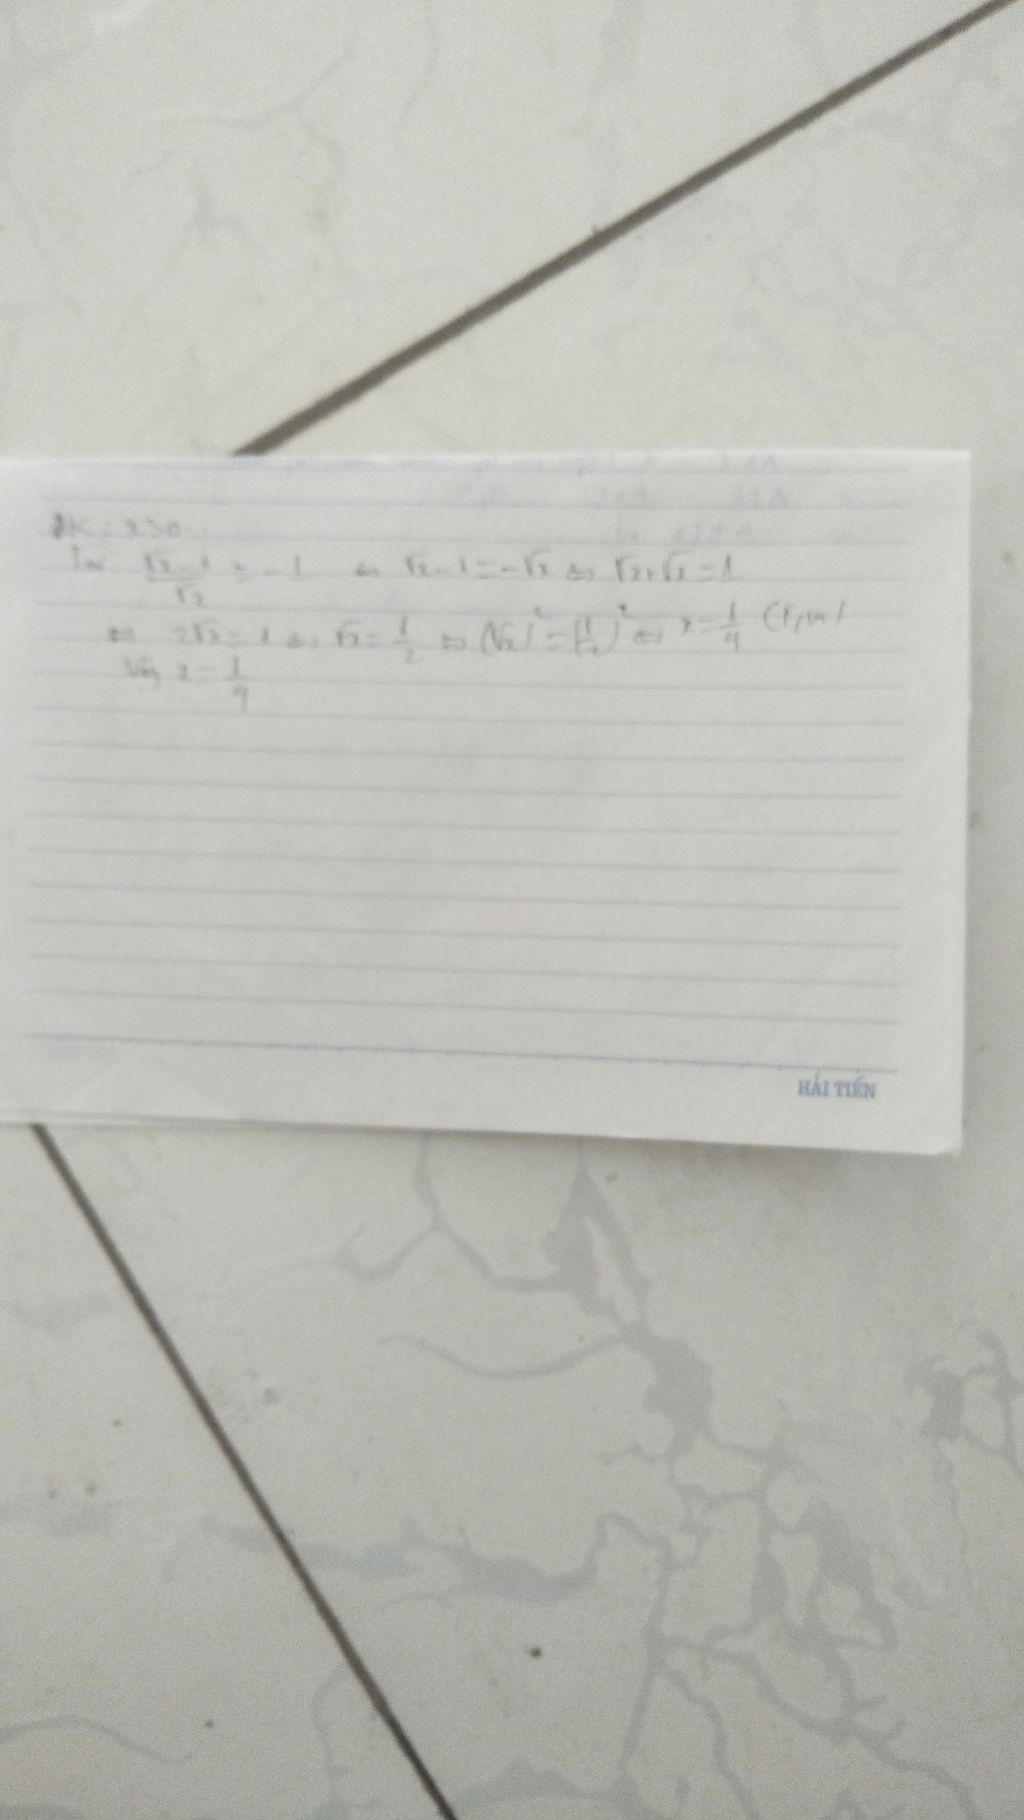 ĐK: x>0
Ta có √x-1/√x = -1 ⇔ √x-1=-√x ⇔ √x+√x=1
⇔ 2√x=1 ⇔ √x=1/2 ⇔ (√x)²=(1/2)² ⇔ x=1/4 (t/m)
Vậy x=1/4
HẢI TIẾN